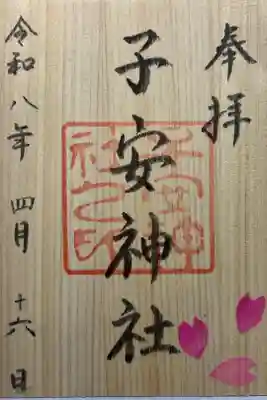 奉拝
子安神社
令和八年 四月 十六日